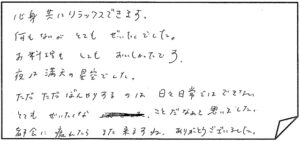 心身共にリラックスできます。
何もないが とても ぜいたくでした。
お料理も とても おいしかったです。
夜は満天の星空でした。
ただただぼんやりするのは 日々日常ではできない
とても ぜいたくな ことだなぁと思いました。
都会に疲れたら また来ますね。ありがとうございました。